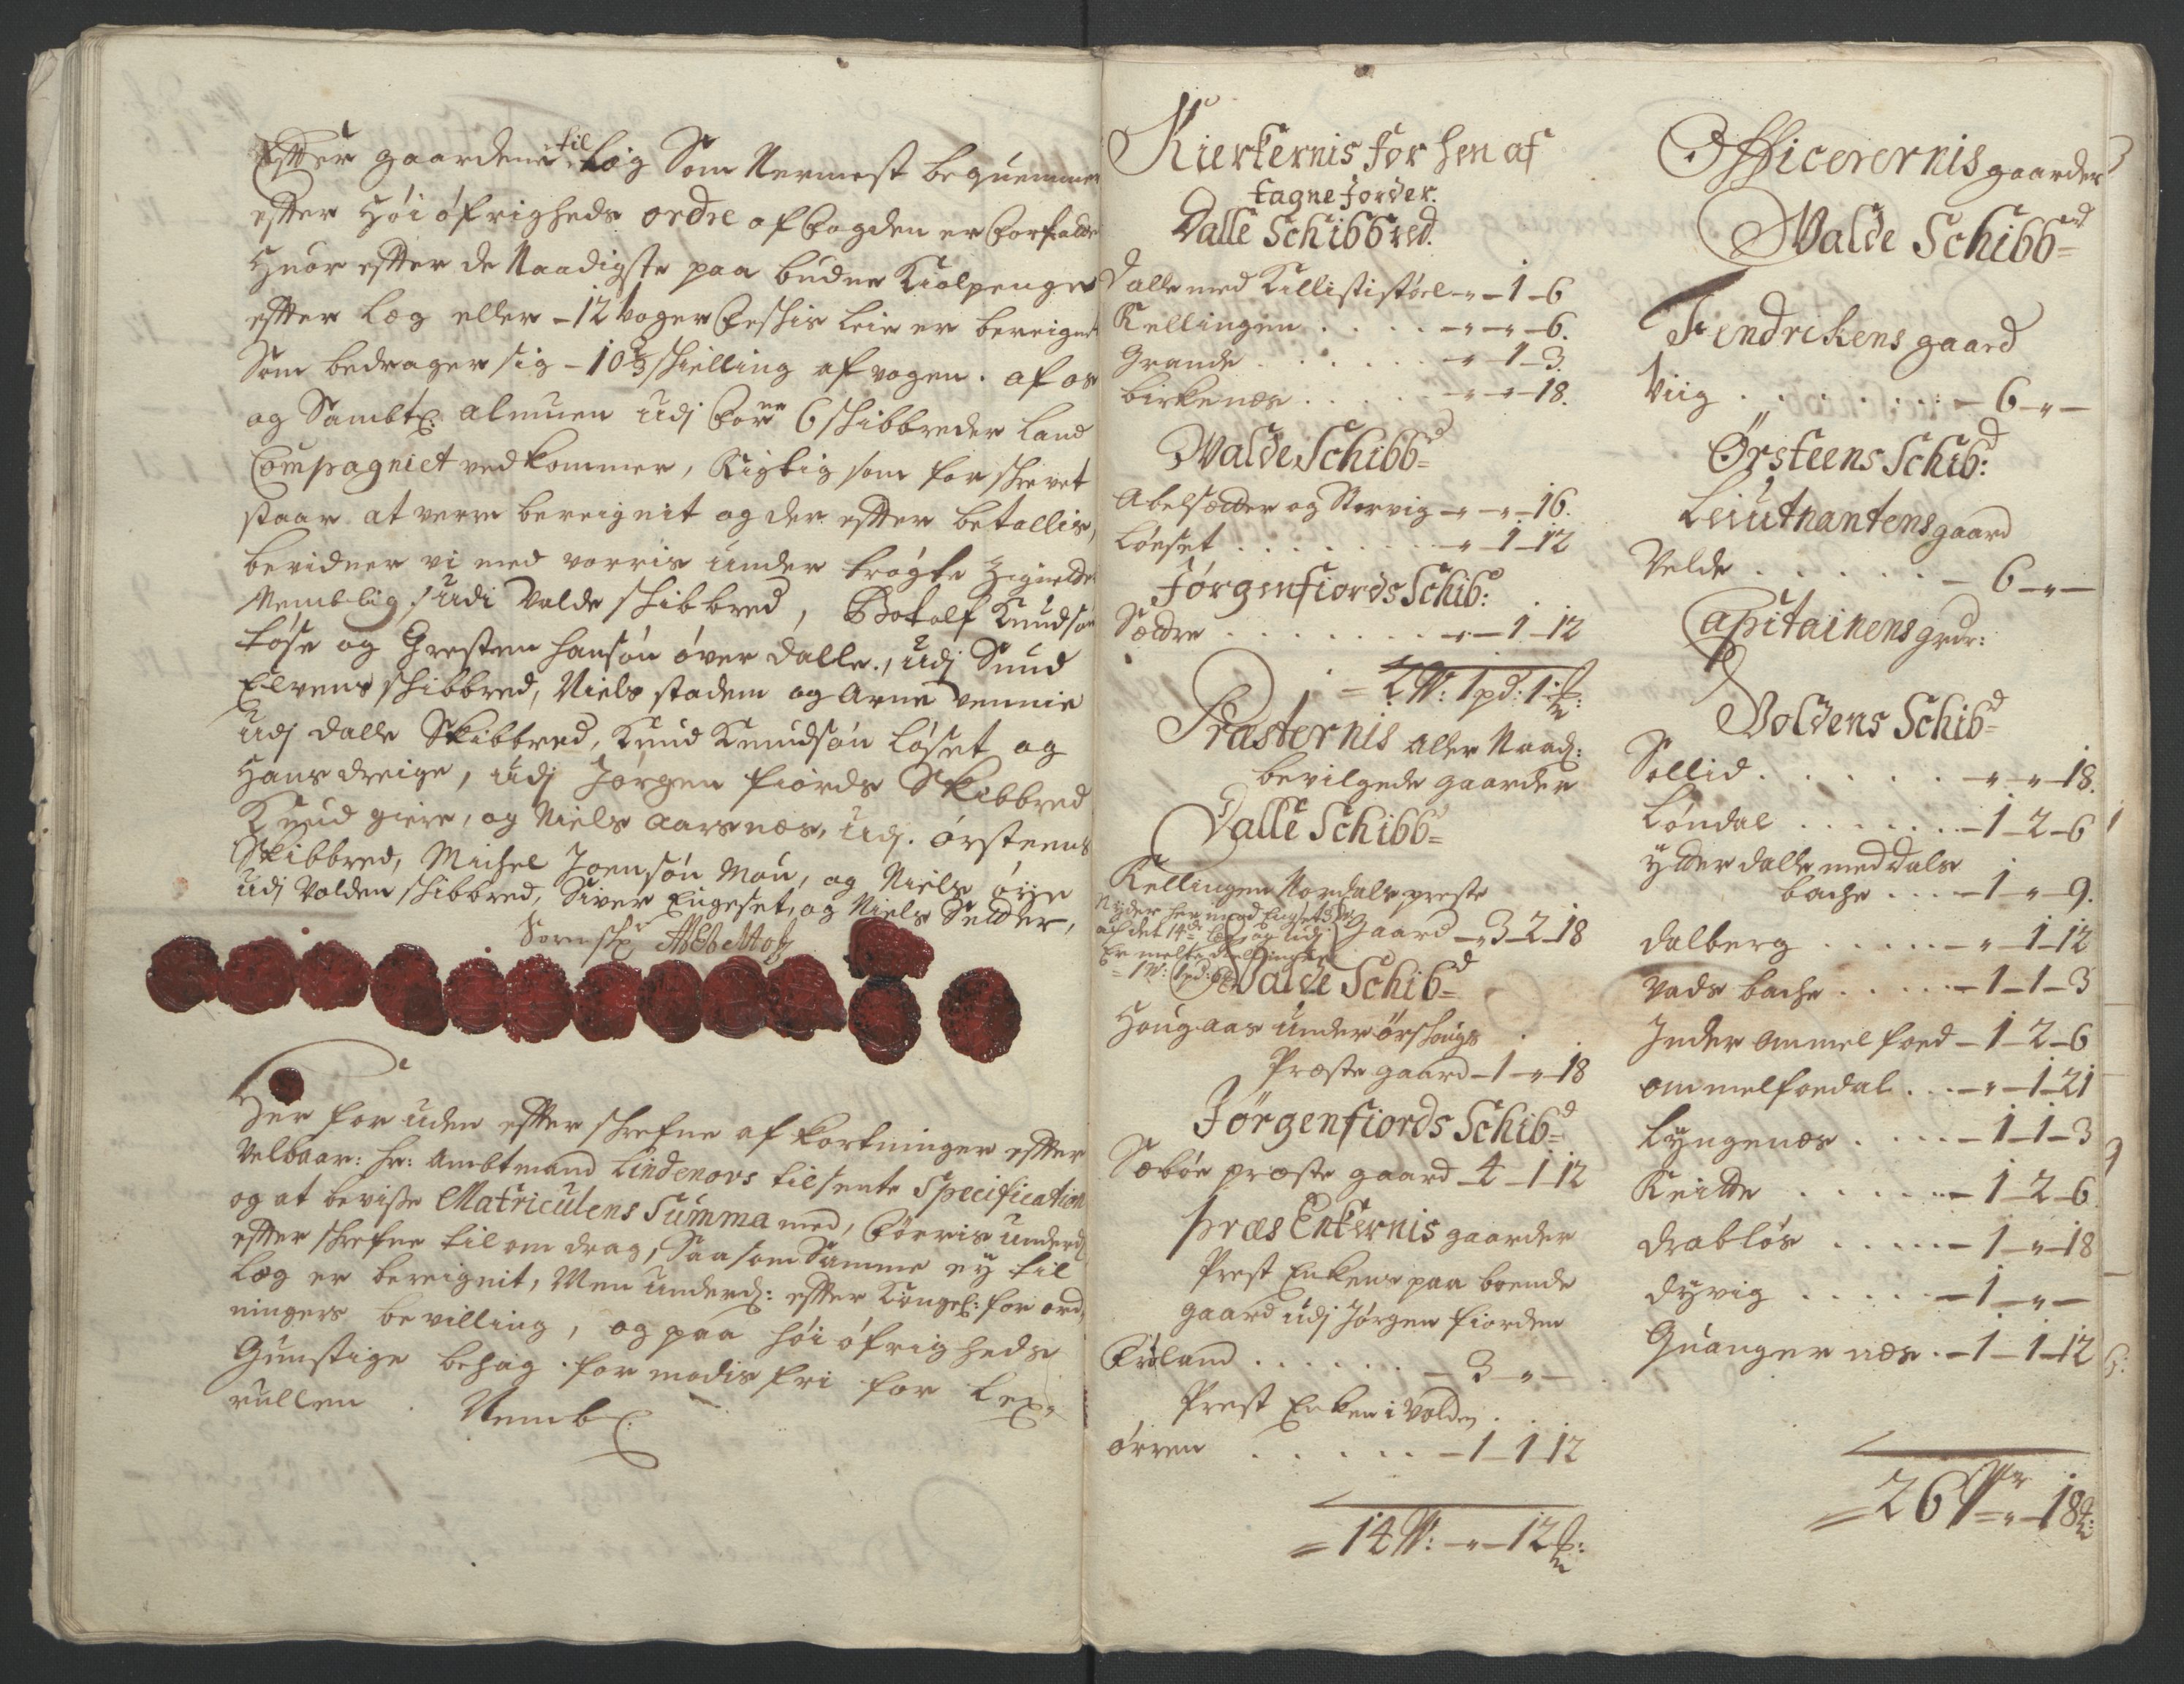 Efter gaardenis til Læg Som Nermest bequemmer
efter Høi øfrigheds ordre af Fogden er forfatted
Huor efter de Naadigste paa budne Kiolpenger
efter Læg eller - 12 Voger Feskis leie er bereignet
Som bedrager sig - 10 2/3 skielling af vogen. af os
og Sambtl: almuen Udj Forne 6 skibbreder Land
Compagniet vedkommer, Rigtig som for skrevet
staar at verre bereignit og der efter betallis,
bevidner vi med vorris under trøgte Zigneter
Nemblig, Udi Valde skibbred, Botolf Knudsøn
Løse og Gresten hansøn øver dalle, Udj Sund
Elvens skibbred, Niels stadem og Arne vennie
Udj dalle Skibbred, Knud Knudsøn Løset og
Hans dreige, Udj Jørgen fiords Skibbred
Knud giere, og Niels Aarsnes, Udj. ørsteens
Skibbred, Michel Joensøn Mou, og Niels øye
Udj Volden skibbred, Siver Engeset, og Niels Sætter,
Sorenskr
Her for uden efter skrefne af kortninger efter
Velbaar: Hr: Ambtmand Lindenovs tilsente Specification
og at bevisse Matriculens Summa med, Føeris underd:
efter skrefne til om drag, Saasom Samme ey til
Læg er bereignit, Men underd: efter Kongel: for ord,
ningers bevilling, og paa høi øfrigheds
Gunstige behag formodis fri for Leg,
rullen. Nembl:
Kierkernis for hen af
tagne Jorder.
Dalle Schibbred.
Dalle med Killististøel - " - 1 - 6
Kellingen . . . . - " - " - 6.
Grande . . . . . - " - 1 - 3.
birkenes . . . . - " - " - 18.
Walde Schibbd=
Abelsætter og Storvig - " - " - 16.
Løeset . . . . . . - " - 1 - 12
Jørgenfiords Schib:
Sætre . . . . . . - " - 1 - 12
= 2 W: 1 pd: 1 ℔:
Præsternis aller Naad:
bevilgede gaarder
Dalle Schibb=
Kellingen Nordals preste
gaard - 3 - 2 - 18
Nyder her imod
Walde Schibd=
Hougaas under ørskougs
Præste gaard - 1 - " - 18
Jørgenfiords Schibd=
Sæbøe præste gaard - 4 - 1 - 12
præsEnkernis gaarder
Prest Enkens paa boende
gaard udj Jørgen fiorden
Füland . . . . . . - 3 - " -
Prest Enken i Volden
ørren . . . . . - 1 - 1 - 12
= 14 W: - " - 12 ℔:
Officerernis gaarder
Walde Schibbd=
Fendrickens gaard
Viig . . . . . . . - 6 - " -
Ørsteens Schibd:
Leiutnantens gaard
Velde . . . . . . - 6 - " -
Capitainens grdr:
Voldens Schibd=
Sollid . . . . . . - " - " - 18.
Løndal . . . . . - 1 - 2 - 6
ytter dalle med dals
bache . . . - 1 - " - 9.
dalberg . . . . . - " - 1 - 12
Vads bache . . . . - 1 - 1 - 3
Inder ommelfoed - 1 - 2 - 6
ommelfoedal . . . - " - 1 - 21
Lyngenes . . . . - 1 - 1 - 3
Reitte . . . . . - 1 - 2 - 6
drabløs . . . . . - 1 - " - 18
dyvig . . . . . - 1 - " -
Quangernes . - 1 - 1 - 12
= 26 Wr - " - 18 ℔: